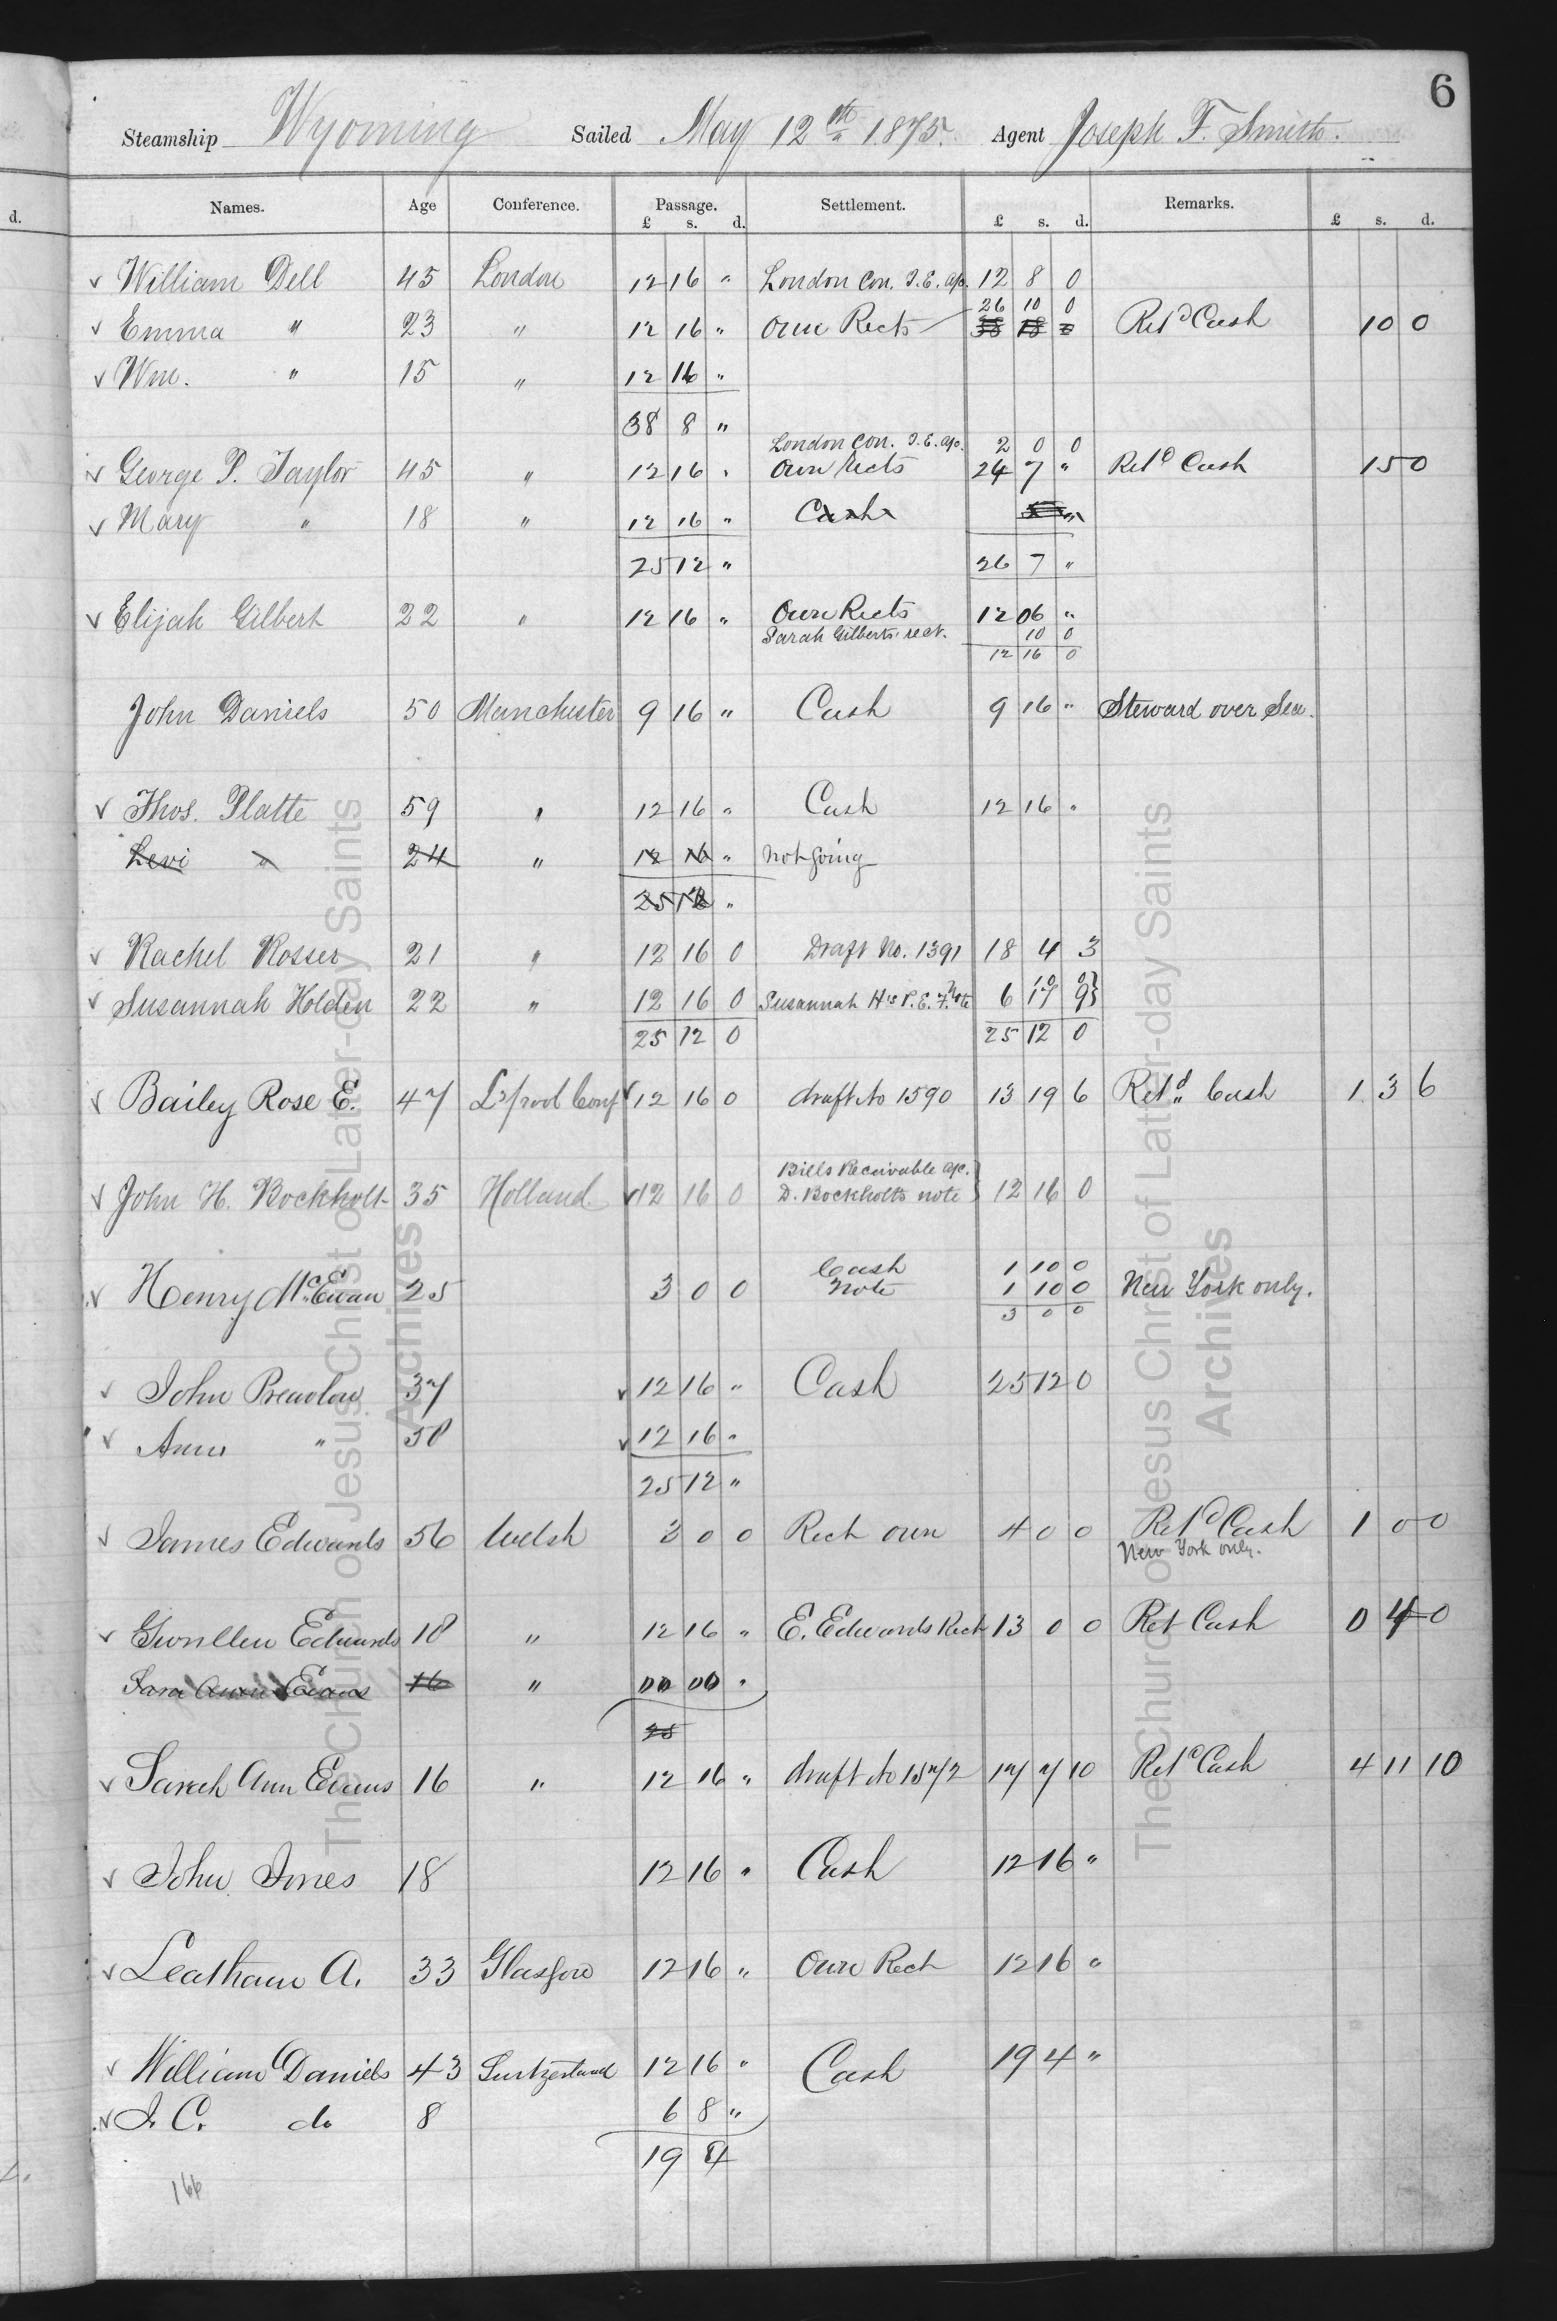 6
Steamship Wyoming Sailed May 12th 1875. Agent Joseph F. Smith.
d. Names. Age Conference. Passage. Settlement. Remarks.
£ s. d. £ s. d. £ s. d.
✓ William Dell 45 London 12 16 " London Con. I.E. a/c. 12 8 0
26 10 0
✓ Emma " 23 " 12 16 " Own Rects Retd Cash 10 0
✓ Wm. " 15 " 12 16 "
38 8 "
London Con. I.E. a/c. 2 0 0
✓ George P. Taylor 45 " 12 16 " Own Rects 24 7 " Retd Cash 15 0
✓ Mary " 18 " 12 16 " Cash
25 12 " 26 7 "
✓ Elijah Gilbert 22 " 12 16 " Own Rects 12 06 "
Sarah Gilberts rect. 10 0
12 16 0
John Daniels 50 Manchester 9 16 " Cash 9 16 " Steward over Sea.
✓ Thos. Platte 59 " 12 16 " Cash 12 16 "
Levi " 24 " 12 16 " not going
25 12 "
✓ Rachel Rosser 21 " 12 16 0 Draft No. 1391 18 4 3
✓ Susannah Holden 22 " 12 16 0 Susannah H's P.E.F. Note 6 17 9
25 12 0 25 12 0
✓ Bailey Rose E. 47 L'pool Conf ✓ 12 16 0 draft No 1590 13 19 6 Retd Cash 1 3 6
Bills Receivable a/c.
✓ John H. Bockholt 35 Holland ✓ 12 16 0 D. Bockholts note } 12 16 0
Cash 1 10 0
✓ Henry McEwan 25 3 0 0 Note 1 10 0 New York only.
3 0 0
✓ John 37 ✓ 12 16 " Cash 25 12 0
✓ Ann " 50 ✓ 12 16 "
25 12 "
✓ James Edwards 56 Welsh 3 0 0 Rect own 4 0 0 Retd Cash 1 0 0
New York only.
✓ Gwnllen Edwards 18 " 12 16 " E. Edwards Rect 13 0 0 Ret Cash 0 4 0
Sara Ann Evans 16 " 00 00 "
25
✓ Sarah Ann Evans 16 " 12 16 " draft No 1572 17 7 10 Retd Cash 4 11 10
✓ John Jones 18 12 16 " Cash 12 16 "
✓ Leatham A. 33 Glasgow 12 16 " Own Rect 12 16 "
✓ William Daniels 43 Switzerland 12 16 " Cash 19 4 "
✓ J. C. do 8 6 8 "
19 4
166
The Church of Jesus Christ of Latter-day Saints
Archives
The Church of Jesus Christ of Latter-day Saints
Archives